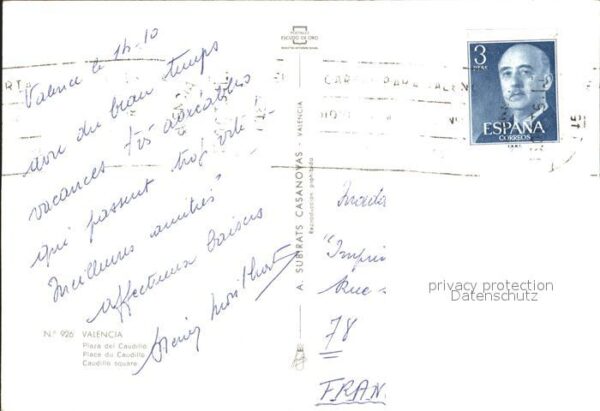 Valence le 14-10
avon du beau temps
vacances très agréables
qui passent trop vite !
Meilleures amitiés
affectueux baisers
Nº 926 VALENCIA
Plaza del Caudillo
Place du Caudillo
Caudillo square
POSTALES
ESCUDO DE ORO
A. SUBIRATS CASANOVAS - VALENCIA
Reproducción prohibida
3
PTAS
ESPAÑA
CORREOS
"Imprim
Rue
78
FRAN
privacy protection
Datenschutz